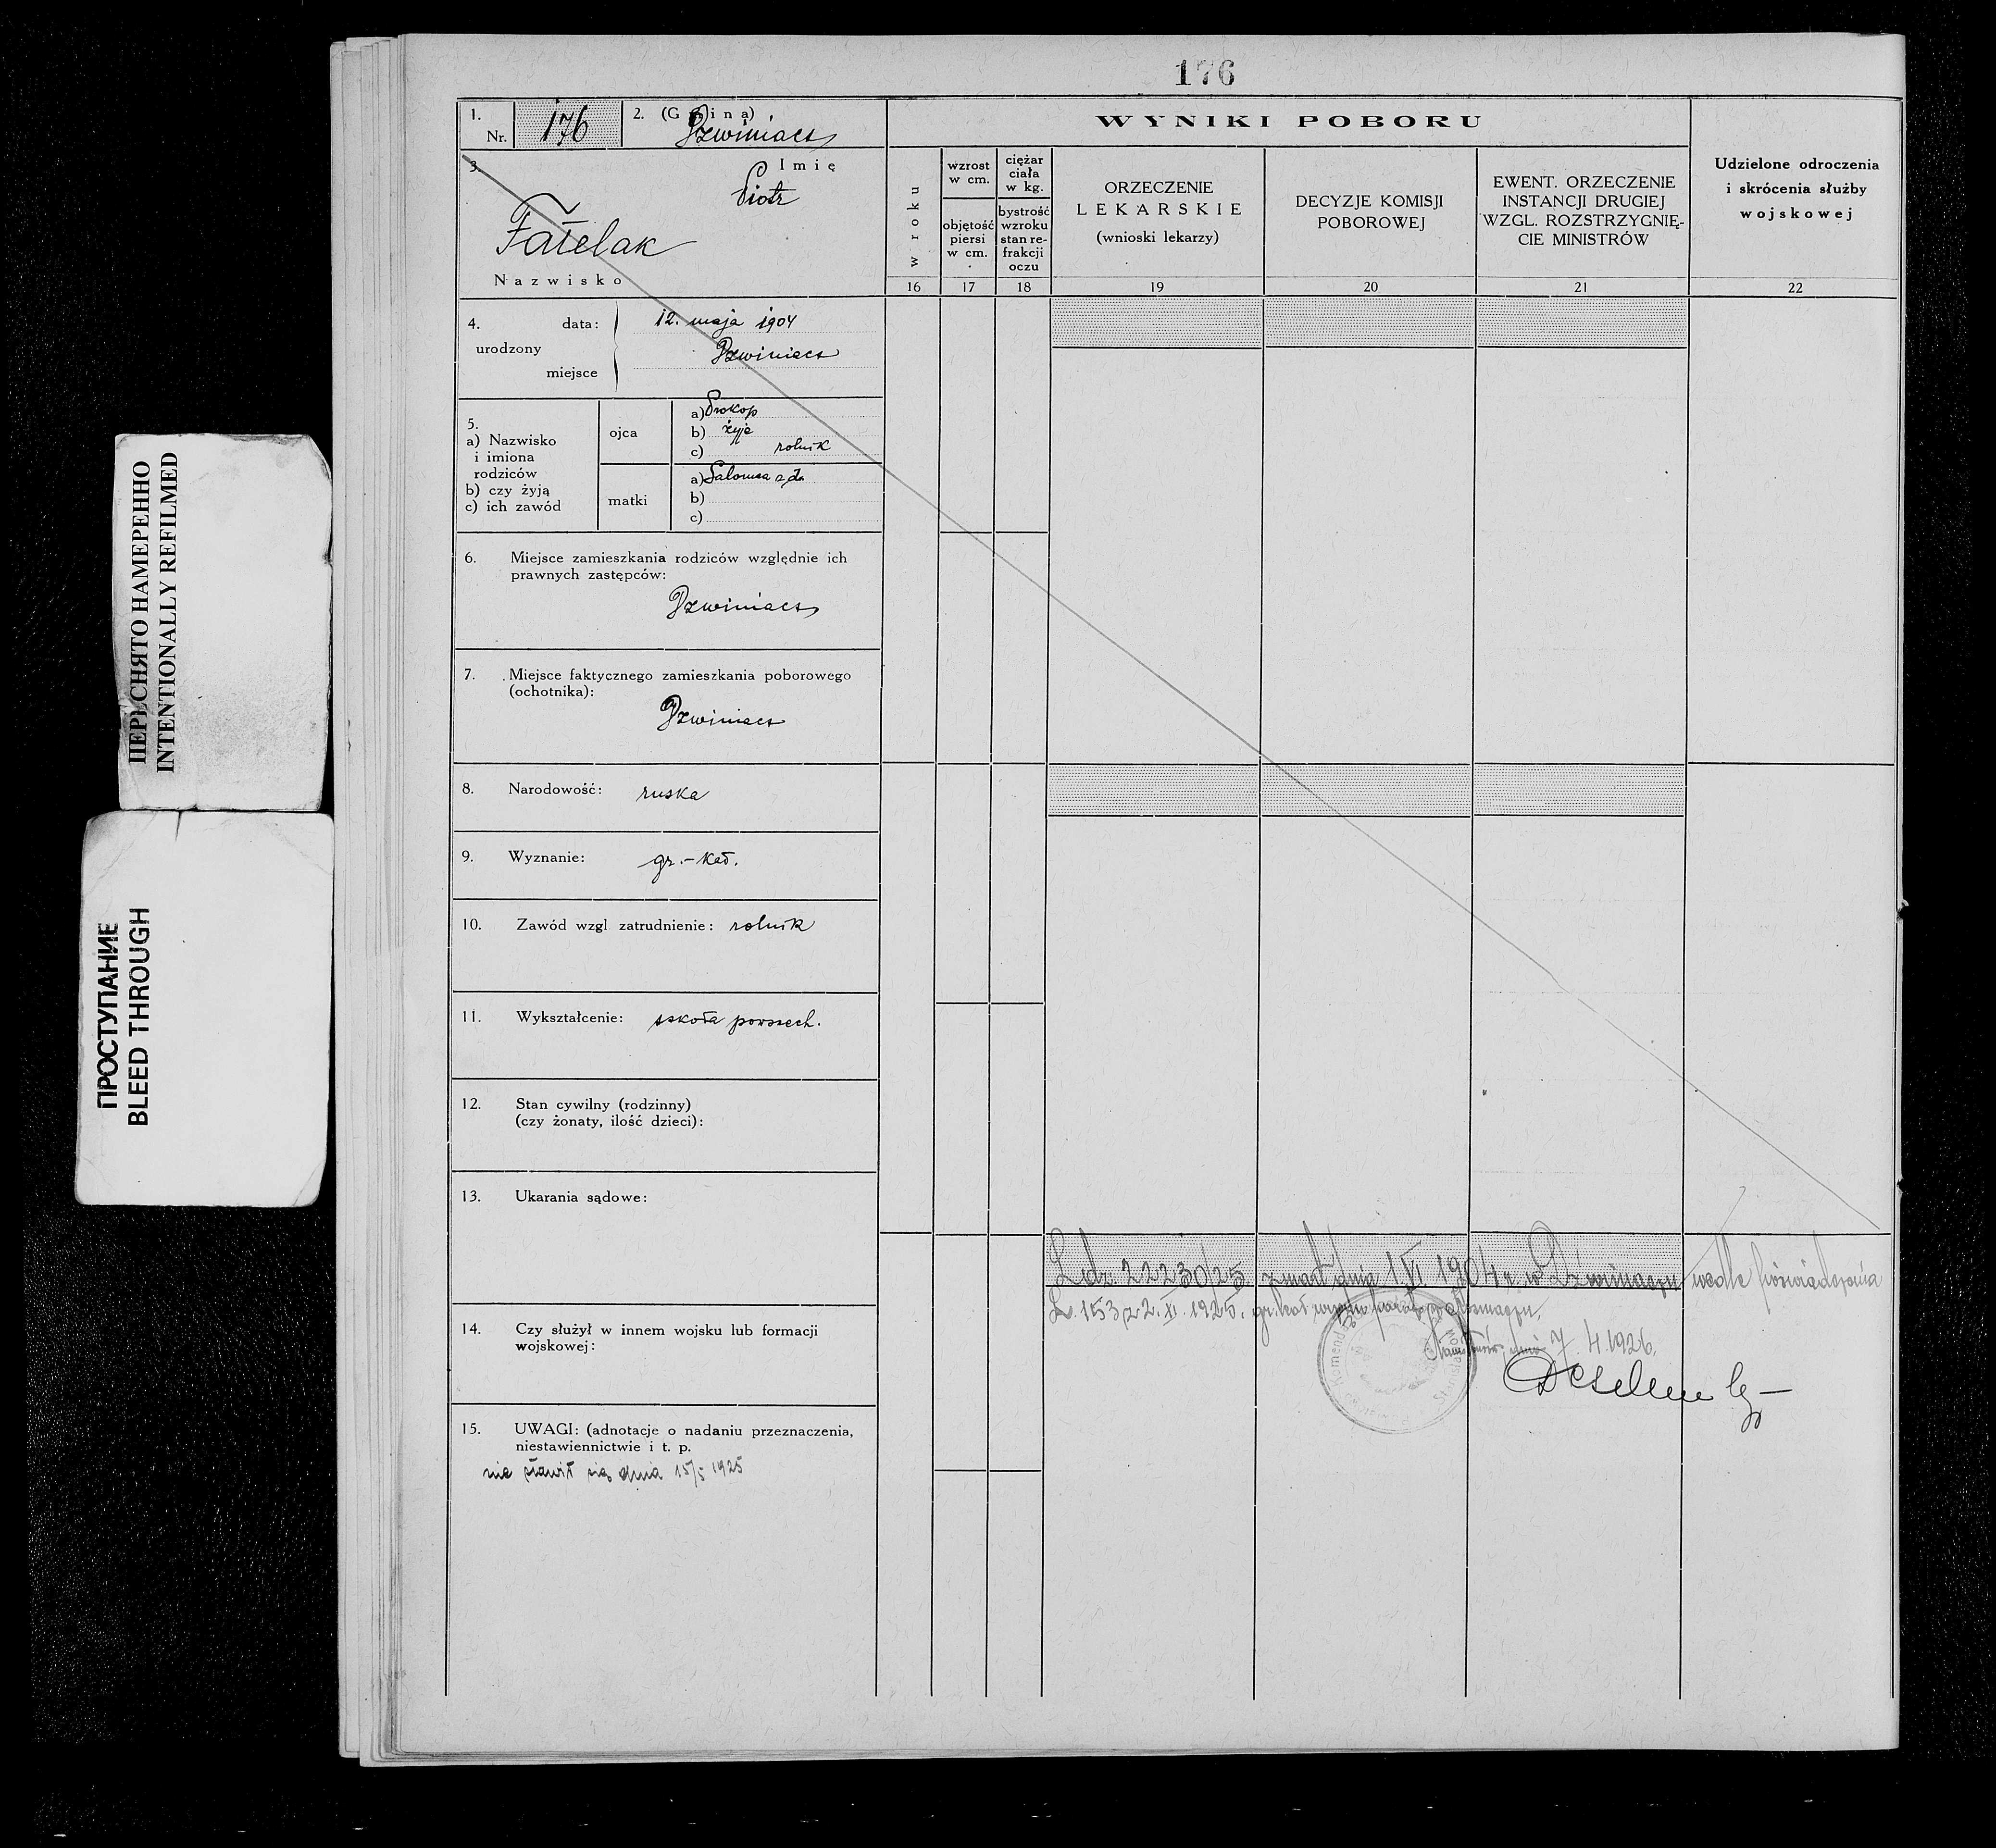 176
1.
Nr. 176
2. (Gmina)
Dzwiniacz
3.
Imię
Piotr
Fatelak
Nazwisko
4.
urodzony
data: 12. maja 1904
miejsce
Dzwiniacz
5.
a) Nazwisko
i imiona
rodziców
b) czy żyją
c) ich zawód
ojca
a) Prokop
b) żyje
c) rolnik
matki
a) Salomea
b)
c)
6. Miejsce zamieszkania rodziców względnie ich
prawnych zastępców:
Dzwiniacz
7. Miejsce faktycznego zamieszkania poborowego
(ochotnika):
Dzwiniacz
8. Narodowość: ruska
9. Wyznanie: gr.-kat.
10. Zawód wzgl. zatrudnienie: rolnik
11. Wykształcenie: szkoła powszech.
12. Stan cywilny (rodzinny)
(czy żonaty, ilość dzieci):
13. Ukarania sądowe:
14. Czy służył w innem wojsku lub formacji
wojskowej:
15. UWAGI: (adnotacje o nadaniu przeznaczenia,
niestawiennictwie i t. p.
nie stawił się dnia 15/5 1925
WYNIKI POBORU
w roku
wzrost
w cm.
objętość
piersi
w cm.
ciężar
ciała
w kg.
bystrość
wzroku
stan re-
frakcji
oczu
ORZECZENIE
LEKARSKIE
(wnioski lekarzy)
DECYZJE KOMISJI
POBOROWEJ
EWENT. ORZECZENIE
INSTANCJI DRUGIEJ
WZGL. ROZSTRZYGNIĘ-
CIE MINISTRÓW
Udzielone odroczenia
i skrócenia służby
wojskowej
16 17 18 19 20 21 22
L.dz. 22230/25 zmarł dnia 1.VI.1904 r. w Dźwiniaczu wedle poświadczenia
L. 153 z 2.XI.1925. gr. kat. urzędu
dnia 7. 4. 1926.
ПЕРЕСНЯТО НАМЕРЕННО
INTENTIONALLY REFILMED
ПРОСТУПАНИЕ
BLEED THROUGH